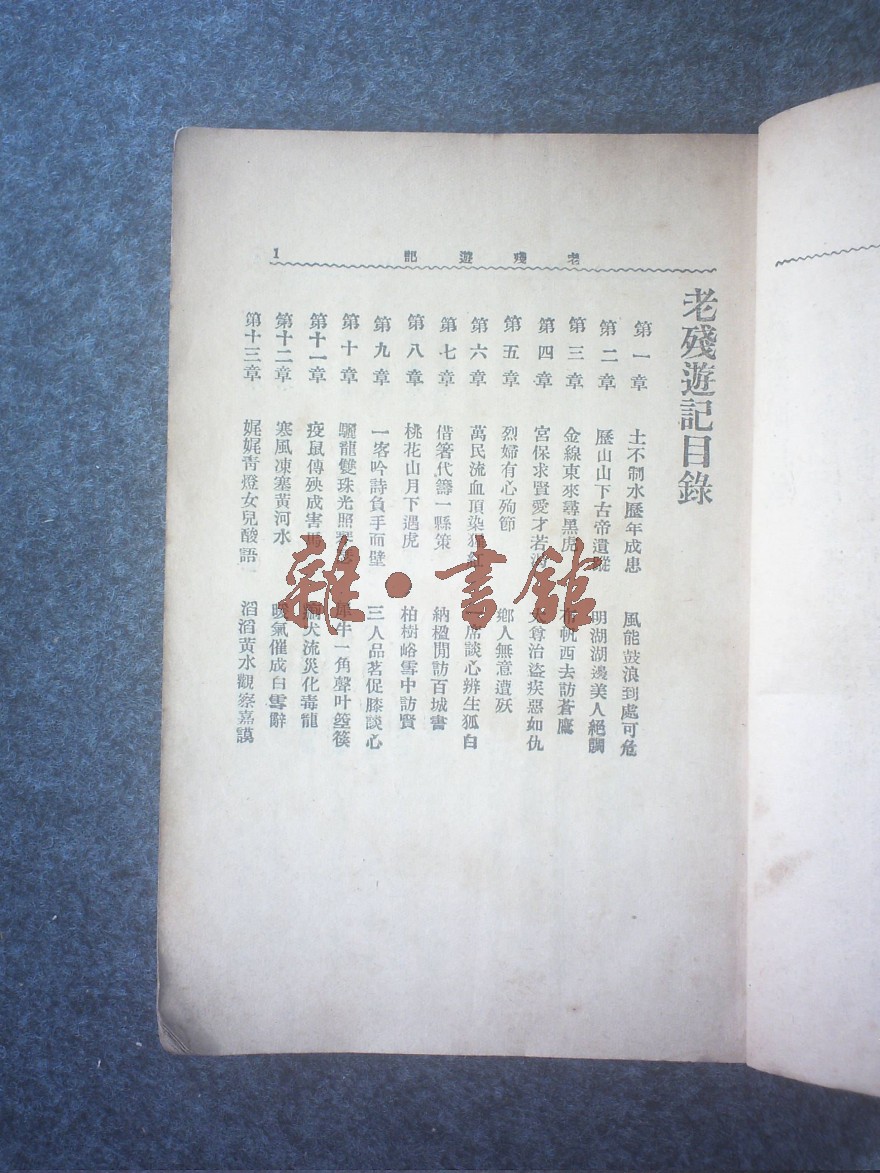 老殘遊記 1
老殘遊記目錄
第一章 土不制水歷年成患 風能鼓浪到處可危
第二章 歷山山下古帝遺蹤 明湖湖邊美人絕調
第三章 金線東來尋黑虎 布帆西去訪蒼鷹
第四章 宮保求賢愛才若渴 太尊治盜疾惡如仇
第五章 烈婦有心殉節 鄉人無意遭殀
第六章 萬民流血頂染猩紅 一席談心辨生狐白
第七章 借箸代籌一縣策 納楹閒訪百城書
第八章 桃花山月下遇虎 柏樹峪雪中訪賢
第九章 一客吟詩負手面壁 三人品茗促膝談心
第十章 驪龍雙珠光照 牛一角聲叶箜篌
第十一章 疫鼠傳殃成害 犬流災化毒龍
第十二章 寒風凍塞黃河水 暖氣催成白雪辭
第十三章 娓娓青燈女兒酸語 滔滔黃水觀察嘉謨
雜·書館